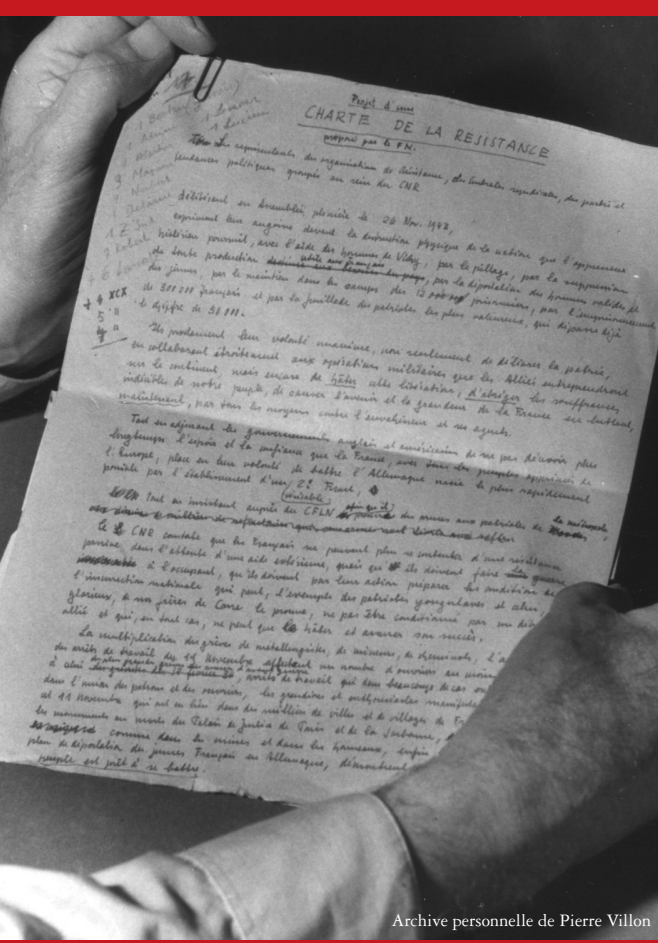 Projet d'une
CHARTE DE LA RESISTANCE
proposé par le F.N.
Les représentants des organisations de Résistance, des Centrales syndicales, des partis et
tendances politiques groupés au sein du CNR
délibérant en Assemblée plénière le 26 Nov. 1943,
expriment leur angoisse devant la destruction physique de la nation que l'oppresseur
hitlérien poursuit, avec l'aide des hommes de Vichy, par le pillage, par la suppression
de toute production utile aux Français, par la déportation des hommes valides et
des jeunes, par le maintien dans les camps des prisonniers, par l'emprisonnement
de 300 000 français et par la fusillade des patriotes les plus valeureux, qui dépasse déjà
le chiffre de 30 000.
Ils proclament leur volonté unanime, non seulement de délivrer la patrie,
en collaborant étroitement aux opérations militaires que les Alliés entreprendront
sur le continent, mais encore de hâter cette libération, d'abréger les souffrances
indicibles de notre peuple, de sauver l'avenir et la grandeur de la France en luttant,
maintenant, par tous les moyens contre l'envahisseur et ses agents.
Tout en adjurant les gouvernements anglais et américain de ne pas décevoir plus
longtemps l'espoir et la confiance que la France, avec tous les peuples opprimés de
l'Europe, place en leur volonté de battre l'Allemagne nazie le plus rapidement
possible par l'établissement d'un 2e Front,
véritable
Tout en insistant auprès du CFLN afin qu'il des armes aux patriotes de la métropole,
le CNR constate que les Français ne peuvent plus se contenter d'une résistance
passive dans l'attente d'une aide extérieure, mais qu'ils doivent faire guerre
à l'occupant, qu'ils doivent par leur action préparer les conditions de
l'insurrection nationale qui peut, l'exemple des patriotes yougoslaves et celui,
glorieux, de nos frères de Corse le prouve, ne pas être conditionnée par un
allié et qui, en tout cas, ne peut que le hâter et assurer son succès.
La multiplication des grèves de métallurgistes, de mineurs, de cheminots,
des arrêts de travail du 11 Novembre affectant un nombre d'ouvriers au moins
à celui arrêts de travail qui dans beaucoup de cas ont
dans l'union des patrons et des ouvriers, les grandioses et enthousiastes
et 11 novembre qui ont eu lieu dans des milliers de villes et de villages de
les monuments aux morts du Palais de Justice de Paris et de la Sorbonne,
comme dans les usines et dans les hameaux, enfin
plan de déportation des jeunes Français en Allemagne, démontrent
peuple est prêt à se battre.
Archive personnelle de Pierre Villon